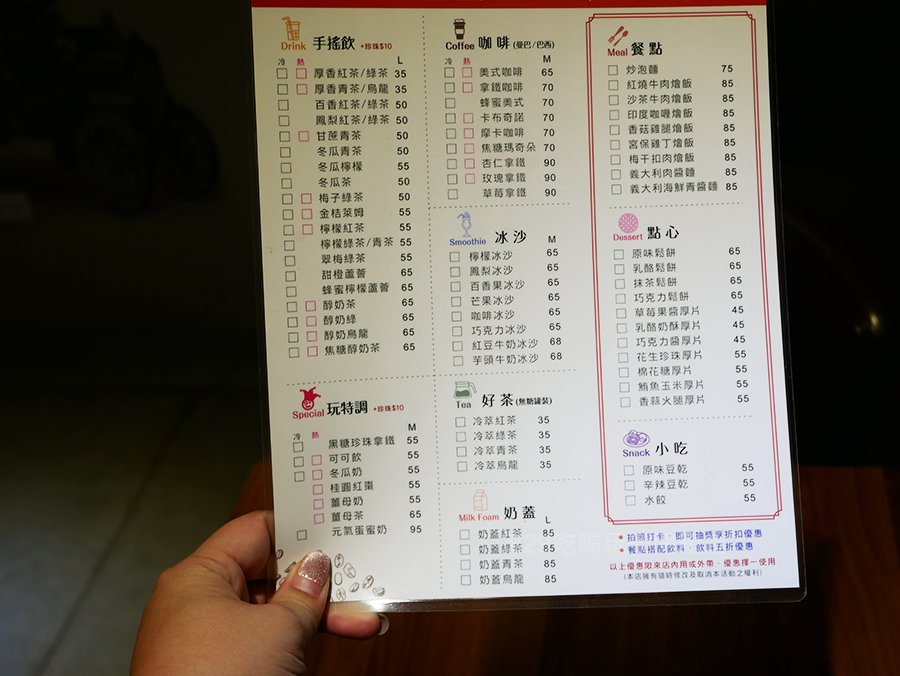 Drink 手搖飲 +珍珠$10
冷 熱 L
厚香紅茶/綠茶 35
厚香青茶/烏龍 35
百香紅茶/綠茶 50
鳳梨紅茶/綠茶 50
甘蔗青茶 50
冬瓜青茶 50
冬瓜檸檬 55
冬瓜茶 50
梅子綠茶 50
金桔萊姆 55
檸檬紅茶 55
檸檬綠茶/青茶 55
翠梅綠茶 55
甜橙蘆薈 65
蜂蜜檸檬蘆薈 65
醇奶茶 65
醇奶綠 65
醇奶烏龍 65
焦糖醇奶茶 65
Special 玩特調 +珍珠$10
冷 熱 M
黑糖珍珠拿鐵 55
可可飲 55
冬瓜奶 55
桂圓紅棗 55
薑母奶 55
薑母茶 65
元氣蛋蜜奶 95
Coffee 咖啡 (曼巴/巴西)
冷 熱 M
美式咖啡 65
拿鐵咖啡 70
蜂蜜美式 70
卡布奇諾 70
摩卡咖啡 70
焦糖瑪奇朵 70
杏仁拿鐵 90
玫瑰拿鐵 90
草莓拿鐵 90
Smoothie 冰沙 M
檸檬冰沙 65
鳳梨冰沙 65
百香果冰沙 65
芒果冰沙 65
咖啡冰沙 65
巧克力冰沙 65
紅豆牛奶冰沙 68
芋頭牛奶冰沙 68
Tea 好茶 (無糖罐裝)
冷萃紅茶 35
冷萃綠茶 35
冷萃青茶 35
冷萃烏龍 35
Milk Foam 奶蓋 L
奶蓋紅茶 85
奶蓋綠茶 85
奶蓋青茶 85
奶蓋烏龍 85
Meal 餐點
炒泡麵 75
紅燒牛肉燴飯 85
沙茶牛肉燴飯 85
印度咖喱燴飯 85
香菇雞腿燴飯 85
宮保雞丁燴飯 85
梅干扣肉燴飯 85
義大利肉醬麵 85
義大利海鮮青醬麵 85
Dessert 點心
原味鬆餅 65
乳酪鬆餅 65
抹茶鬆餅 65
巧克力鬆餅 65
草莓果醬厚片 45
乳酪奶酥厚片 45
巧克力醬厚片 45
花生珍珠厚片 55
棉花糖厚片 55
鮪魚玉米厚片 55
香蒜火腿厚片 55
Snack 小吃
原味豆乾 55
辛辣豆乾 55
水餃 55
• 拍照打卡，即可抽獎享折扣優惠
• 餐點搭配飲料，飲料五折優惠
以上優惠限來店內用或外帶，優惠擇一使用
(本店擁有隨時修改及取消本活動之權利)